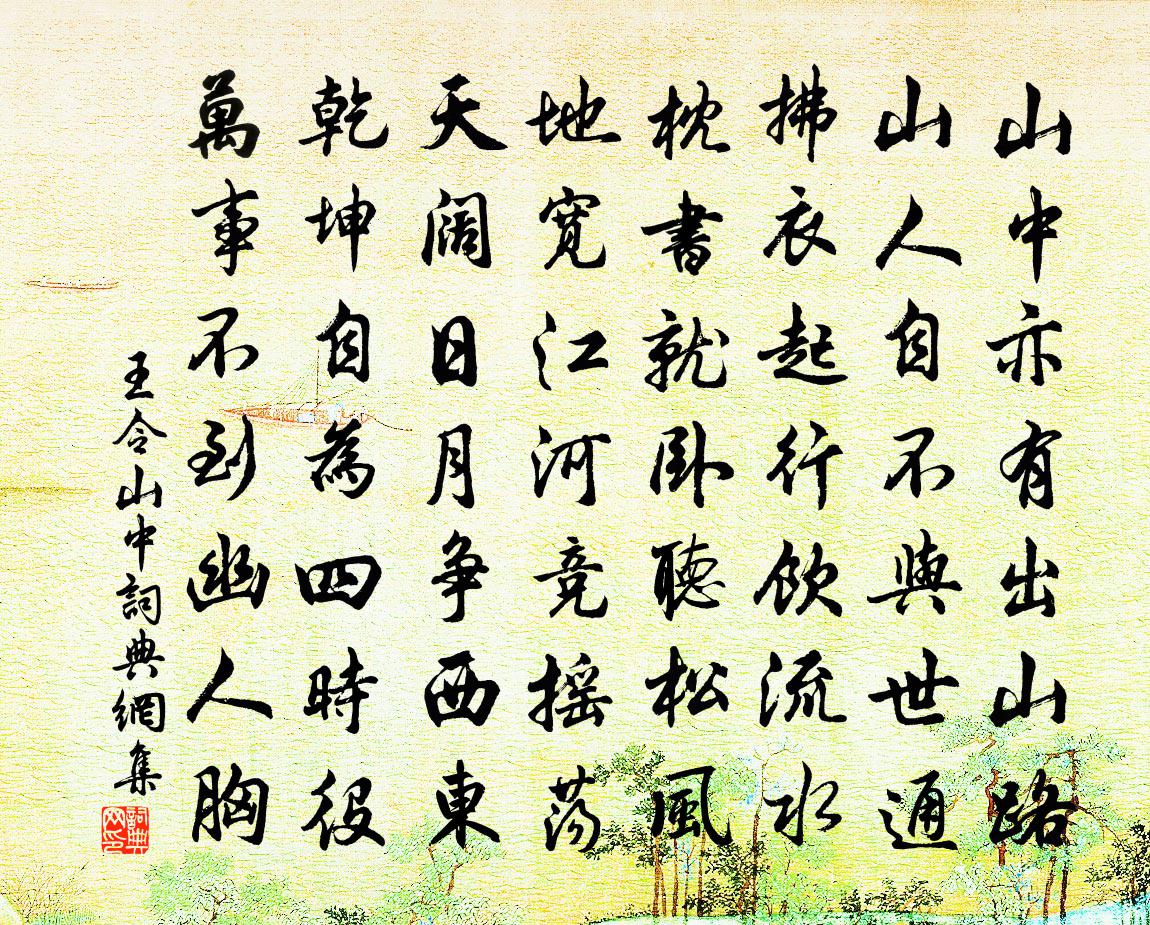 山中亦有出山路
山人自不與世通
拂衣起行飲流水
枕書就臥聽松風
地寬江河競搖蕩
天闊日月爭西東
乾坤自為四時役
萬事不到幽人胸
王令山中詞典網集
詞典網印